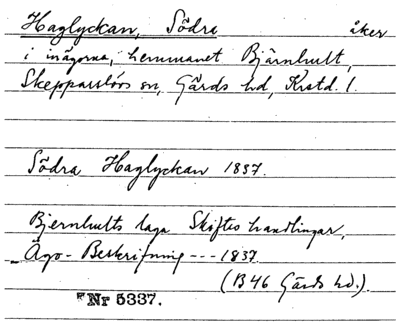 Haglyckan, Södra åker
i inägorna, hemmanet Bjärnhult,
Skepparslövs sn, Gärds hd, Krstd. l.
Södra Haglyckan 1837.
Bjernhults laga Skiftes handlingar,
Ägo-Beskrifning --- 1837.
(B46 Gärds hd.).
Nr 5337.